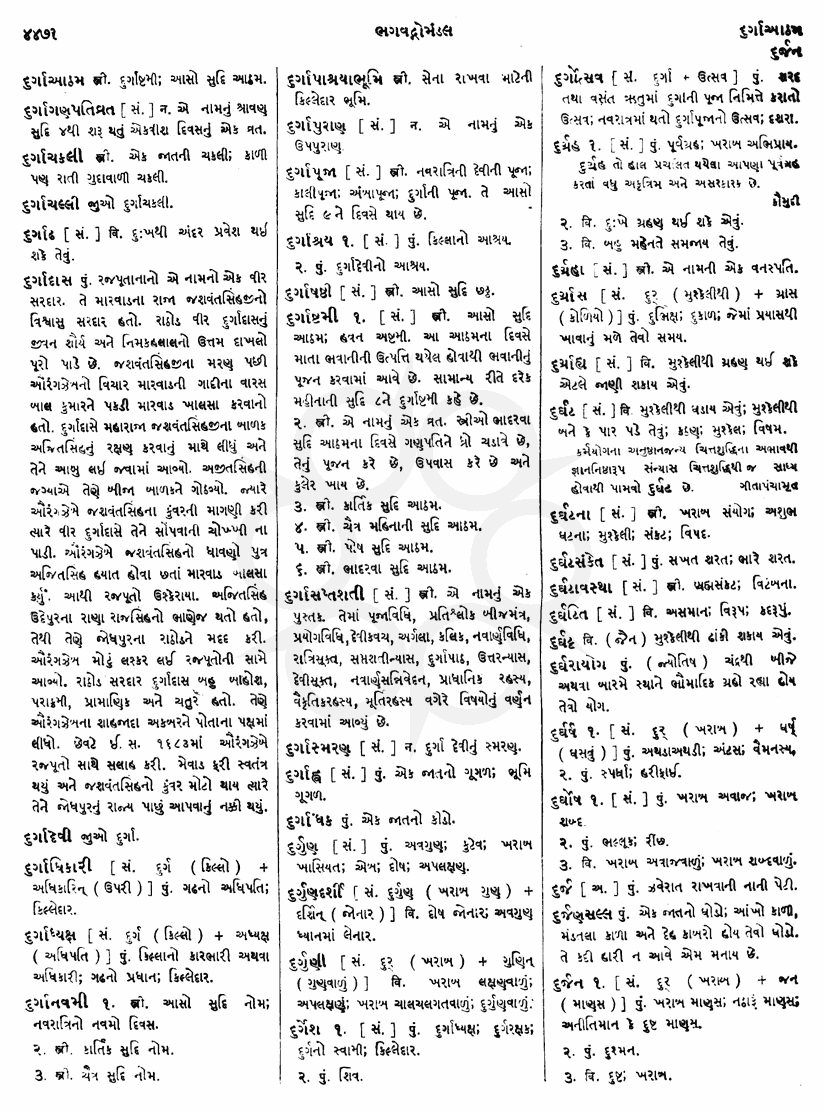 ૪૪૭૧
ભગવદ્ગોમંડલ
દુર્ગાઆઠમ
દુર્જન
દુર્ગાઆઠમ સ્ત્રી. દુર્ગાષ્ટમી; આસો સુદિ આઠમ.
દુર્ગાગણપતિવ્રત [ સં. ] ન. એ નામનું શ્રાવણ
સુદિ ૪થી શરૂ થતું એકવીશ દિવસનું એક વ્રત.
દુર્ગાચકલી સ્ત્રી. એક જાતની ચકલી; કાળી
પણ રાતી ગુદાવાળી ચકલી.
દુર્ગાચલ્લી જુઓ દુર્ગાચકલી.
દુર્ગાઢ [ સં. ] વિ. દુઃખથી અંદર પ્રવેશ થઈ
શકે તેવું.
દુર્ગાદાસ પું. રજપૂતાનાનો એ નામનો એક વીર
સરદાર. તે મારવાડના રાજા જશવંતસિંહજીનો
વિશ્વાસુ સરદાર હતો. રાઠોડ વીર દુર્ગાદાસનું
જીવન શૌર્ય અને નિમકહલાલનો ઉત્તમ દાખલો
પૂરો પાડે છે. જશવંતસિંહજીના મરણ પછી
ઔરંગઝેબનો વિચાર મારવાડની ગાદીના વારસ
બાલ કુમારને પકડી મારવાડ ખાલસા કરવાનો
હતો. દુર્ગાદાસે મહારાજ જશવંતસિંહજીના બાળક
અજિતસિંહનું રક્ષણ કરવાનું માથે લીધું અને
તેને આબુ લઈ જવામાં આવ્યો. અજીતસિંહની
જગ્યાએ તેણે બીજા બાળકને ગોઠવ્યો. જ્યારે
ઔરંગઝેબે જશવંતસિંહના કુંવરની માગણી કરી
ત્યારે વીર દુર્ગાદાસે તેને સોંપવાની ચોખ્ખી ના
પાડી. ઔરંગઝેબે જશવંતસિંહનો ધાવણો પુત્ર
અજિતસિંહ હયાત હોવા છતાં મારવાડ ખાલસા
કર્યું. આથી રજપૂતો ઉશ્કેરાયા. અજિતસિંહ
ઉદેપુરના રાણા રાજસિંહનો ભાણેજ થતો હતો,
તેથી તેણે જોધપુરના રાઠોડને મદદ કરી.
ઔરંગઝેબ મોટું લશ્કર લઈ રજપૂતોની સામે
આવ્યો. રાઠોડ સરદાર દુર્ગાદાસ બહુ બાહોશ,
પરાક્રમી, પ્રામાણિક અને ચતુર હતો. તેણે
ઔરંગઝેબના શાહજાદા અકબરને પોતાના પક્ષમાં
લીધો. છેવટે ઈ. સ. ૧૬૮૩માં ઔરંગઝેબે
રજપૂતો સાથે સલાહ કરી. મેવાડ ફરી સ્વતંત્ર
થયું અને જશવંતસિંહનો કુંવર મોટો થાય ત્યારે
તેને જોધપુરનું રાજ્ય પાછું આપવાનું નક્કી થયું.
દુર્ગાદેવી જુઓ દુર્ગા.
દુર્ગાધિકારી [ સં. દુર્ગ ( કિલ્લો ) +
અધિકારિન્ ( ઉપરી ) ] પું. ગઢનો અધિપતિ;
કિલ્લેદાર.
દુર્ગાધ્યક્ષ [ સં. દુર્ગ ( કિલ્લો ) + અધ્યક્ષ
( અધિપતિ ) ] પું. કિલ્લાનો કારભારી અથવા
અધિકારી; ગઢનો પ્રધાન; કિલ્લેદાર.
દુર્ગાનવમી ૧. સ્ત્રી. આસો સુદિ નોમ;
નવરાત્રિનો નવમો દિવસ.
૨. સ્ત્રી. કાર્તિક સુદિ નોમ.
૩. સ્ત્રી. ચૈત્ર સુદિ નોમ.
દુર્ગાપાશ્રયાભૂમિ સ્ત્રી. સેના રાખવા માટેની
કિલ્લેદાર ભૂમિ.
દુર્ગાપુરાણ [ સં. ] ન. એ નામનું એક
ઉપપુરાણ.
દુર્ગાપૂજા [ સં. ] સ્ત્રી. નવરાત્રિની દેવીની પૂજા;
કાલીપૂજા; અંબાપૂજા; દુર્ગાની પૂજા. તે આસો
સુદિ ૯ ને દિવસે થાય છે.
દુર્ગાશ્રય ૧. [ સં. ] પું. કિલ્લાનો આશ્રય.
૨. પું. દુર્ગાદેવીનો આશ્રય.
દુર્ગાષષ્ઠી [ સં. ] સ્ત્રી. આસો સુદિ છઠ્ઠ.
દુર્ગાષ્ટમી ૧. [ સં. ] સ્ત્રી. આસો સુદિ
આઠમ; હવન અષ્ટમી. આ આઠમના દિવસે
માતા ભવાનીની ઉત્પત્તિ થયેલ હોવાથી ભવાનીનું
પૂજન કરવામાં આવે છે. સામાન્ય રીતે દરેક
મહીનાની સુદિ ૮ને દુર્ગાષ્ટમી કહે છે.
૨. સ્ત્રી. એ નામનું એક વ્રત. સ્ત્રીઓ ભાદરવા
સુદિ આઠમના દિવસે ગણપતિને ધ્રો ચડાવે છે,
તેનું પૂજન કરે છે, ઉપવાસ કરે છે અને
કુલેર ખાય છે.
૩. સ્ત્રી. કાર્તિક સુદિ આઠમ.
૪. સ્ત્રી. ચૈત્ર મહિનાની સુદિ આઠમ.
૫. સ્ત્રી. પોષ સુદિ આઠમ.
૬. સ્ત્રી. ભાદરવા સુદિ આઠમ.
દુર્ગાસપ્તશતી [ સં. ] સ્ત્રી. એ નામનું એક
પુસ્તક. તેમાં પૂજાવિધિ, પ્રતિશ્લોક બીજમંત્ર,
પ્રયોગવિધિ, દેવીકવચ, અર્ગલા, કલિક, નવાર્ણવિધિ,
રાત્રિસૂક્ત, સપ્તશતીન્યાસ, દુર્ગાપાઠ, ઉત્તરન્યાસ,
દેવીસૂક્ત, નવાર્ણસંનિવેદન, પ્રાધાનિક રહસ્ય,
વૈકૃતિકરહસ્ય, મૂર્તિરહસ્ય વગેરે વિષયોનું વર્ણન
કરવામાં આવ્યું છે.
દુર્ગાસ્મરણ [ સં. ] ન. દુર્ગા દેવીનું સ્મરણ.
દુર્ગાહ્વ [ સં. ] પું. એક જાતનો ગૂગળ; ભૂમિ
ગૂગળ.
દુર્ગાંધક પું. એક જાતનો કોડો.
દુર્ગુણ [ સં. ] પું. અવગુણ; કુટેવ; ખરાબ
ખાસિયત; એબ; દોષ; અપલક્ષણ.
દુર્ગુણદર્શી [ સં. દુર્ગુણ ( ખરાબ ગુણ ) +
દર્શિન્ ( જોનાર ) ] વિ. દોષ જોનાર; અવગુણ
ધ્યાનમાં લેનાર.
દુર્ગુણી [ સં. દુર્ ( ખરાબ ) + ગુણિન્
( ગુણવાળું ) ] વિ. ખરાબ લક્ષણવાળું;
અપલક્ષણું; ખરાબ ચાલચલગતવાળું; દુર્ગુણવાળું.
દુર્ગેશ ૧. [ સં. ] પું. દુર્ગાધ્યક્ષ; દુર્ગરક્ષક;
દુર્ગનો સ્વામી; કિલ્લેદાર.
૨. પું. શિવ.
દુર્ગોત્સવ [ સં. દુર્ગા + ઉત્સવ ] પું. શરદ
તથા વસંત ઋતુમાં દુર્ગાની પૂજા નિમિત્તે કરાતો
ઉત્સવ; નવરાત્રમાં થતો દુર્ગાપૂજાનો ઉત્સવ; દશરા.
દુર્ગ્રહ ૧. [ સં. ] પું. પૂર્વગ્રહ; ખરાબ અભિપ્રાય.
દુર્ગ્રહ તો હાલ પ્રચલિત થયેલા આપણા પૂર્વગ્રહ
કરતાં વધુ અકૃત્રિમ અને અસરકારક છે.
કૌમુદી
૨. વિ. દુઃખે ગ્રહણ થઈ શકે એવું.
૩. વિ. બહુ મહેનતે સમજાય તેવું.
દુર્ગ્રહા [ સં. ] સ્ત્રી. એ નામની એક વનસ્પતિ.
દુર્ગ્રાસ [ સં. દુર્ ( મુશ્કેલીથી ) + ગ્રાસ
( કોળિયો ) ] પું. દુર્ભિક્ષ; દુકાળ; જેમાં પ્રયાસથી
ખાવાનું મળે તેવો સમય.
દુર્ગ્રાહ્ય [ સં. ] વિ. મુશ્કેલીથી ગ્રહણ થઈ શકે
એટલે જાણી શકાય એવું.
દુર્ઘટ [ સં. ] વિ. મુશ્કેલીથી ઘડાય એવું; મુશ્કેલીથી
બને કે પાર પડે તેવું; કઠણ; મુશ્કેલ; વિષમ.
કર્મયોગના અનુષ્ઠાનજન્ય ચિત્તશુદ્ધિના અભાવથી
જ્ઞાનનિષ્ઠારૂપ સંન્યાસ ચિત્તશુદ્ધિથી જ સાધ્ય
હોવાથી પામવો દુર્ઘટ છે. ગીતાપંચામૃત
દુર્ઘટના [ સં. ] સ્ત્રી. ખરાબ સંયોગ; અશુભ
ઘટના; મુશ્કેલી; સંકટ; વિપદ.
દુર્ઘટસંકેત [ સં. ] પું. સખત શરત; ભારે શરત.
દુર્ઘટાવસ્થા [ સં. ] સ્ત્રી. પ્રાણસંકટ; વિટંબના.
દુર્ઘટિત [ સં. ] વિ. અસમાન; વિરૂપ; કદરૂપું.
દુર્ઘટ્ટ વિ. ( જૈન ) મુશ્કેલીથી ઢાંકી શકાય એવું.
દુર્ઘરાયોગ પું. ( જ્યોતિષ ) ચંદ્રથી બીજે
અથવા બારમે સ્થાને ભૌમાદિક ગ્રહો રહ્યા હોય
તેવો યોગ.
દુર્ઘર્ષ ૧. [ સં. દુર્ ( ખરાબ ) + ઘર્ષ્
( ઘસવું ) ] પું. અથડાઅથડી; અંટસ; વૈમનસ્ય.
૨. પું. સ્પર્ધા; હરીફાઈ.
દુર્ઘોષ ૧. [ સં. ] પું. ખરાબ અવાજ; ખરાબ
શબ્દ.
૨. પું. ભલ્લૂક; રીંછ.
૩. વિ. ખરાબ અવાજવાળું; ખરાબ શબ્દવાળું.
દુર્જ [ અ. ] પું. ઝવેરાત રાખવાની નાની પેટી.
દુર્જણસલ્લ પું. એક જાતનો ઘોડો; આંખો કાળા,
મંડતલા કાળા અને દેહ કાબરો હોય તેવો ઘોડો.
તે કદી હારી ન આવે એમ મનાય છે.
દુર્જન ૧. [ સં. દુર્ ( ખરાબ ) + જન
( માણસ ) ] પું. ખરાબ માણસ; નઠારું માણસ;
અનીતિમાન કે દુષ્ટ માણસ.
૨. પું. દુશ્મન.
૩. વિ. દુષ્ટ; ખરાબ.